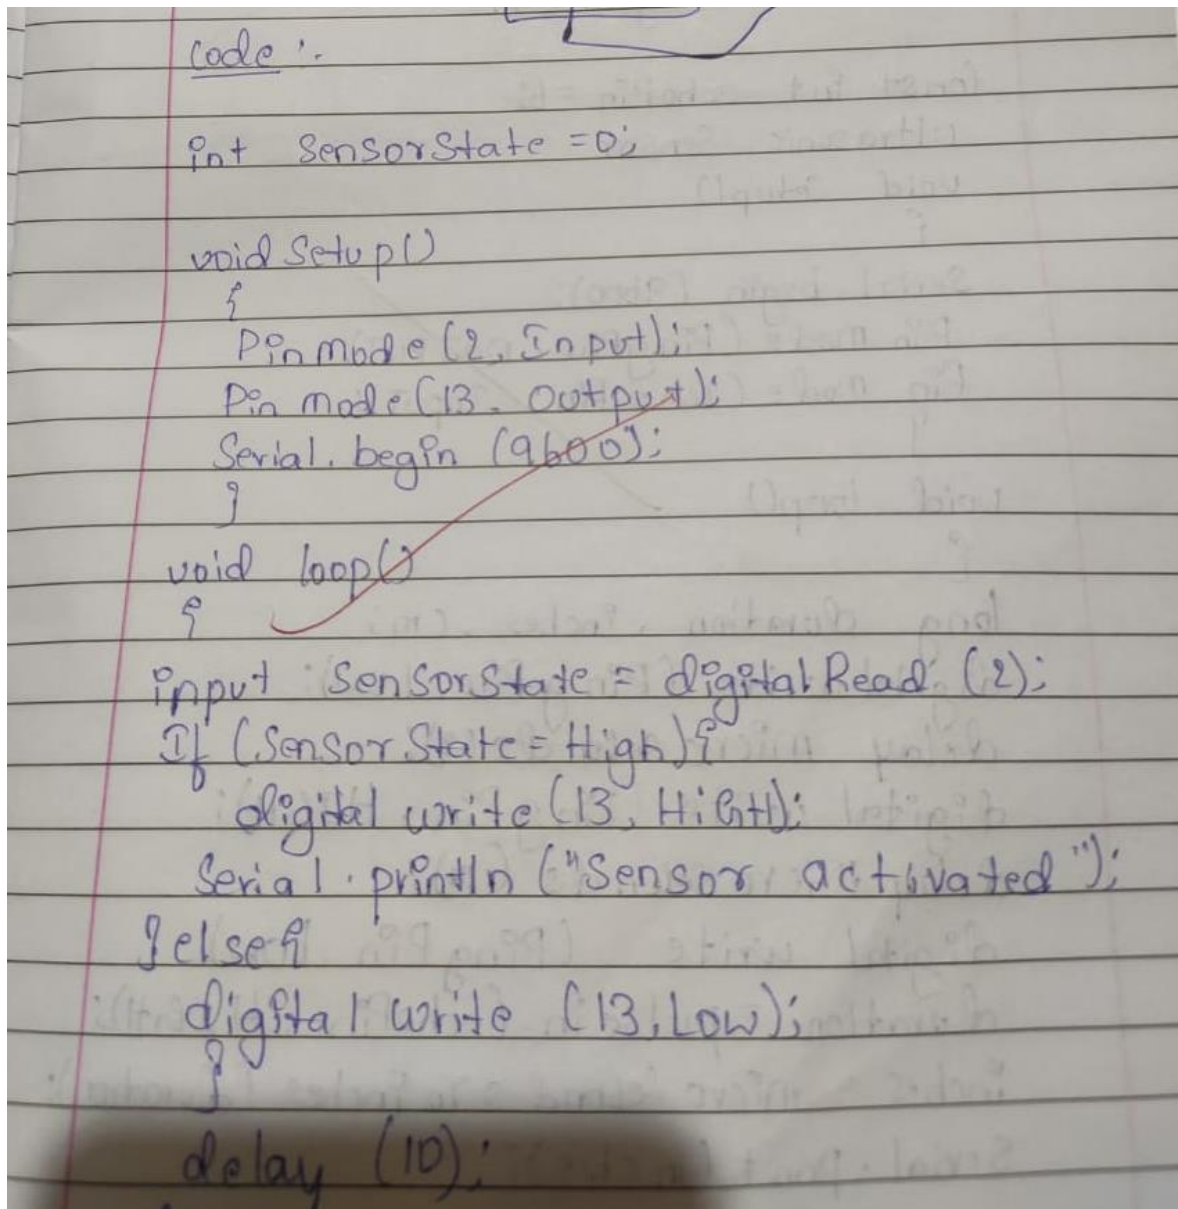 code :-
int SensorState = 0;
void Setup()
{
Pinmode (2, Input);
Pin mode (13, Output);
Serial. begin (9600);
}
void loop()
{
input SensorState = digital Read (2);
If (Sensor State = High) {
digital write (13, HiGH);
Serial . println ("Sensor activated");
} else {
digital write (13, Low);
}
delay (10);